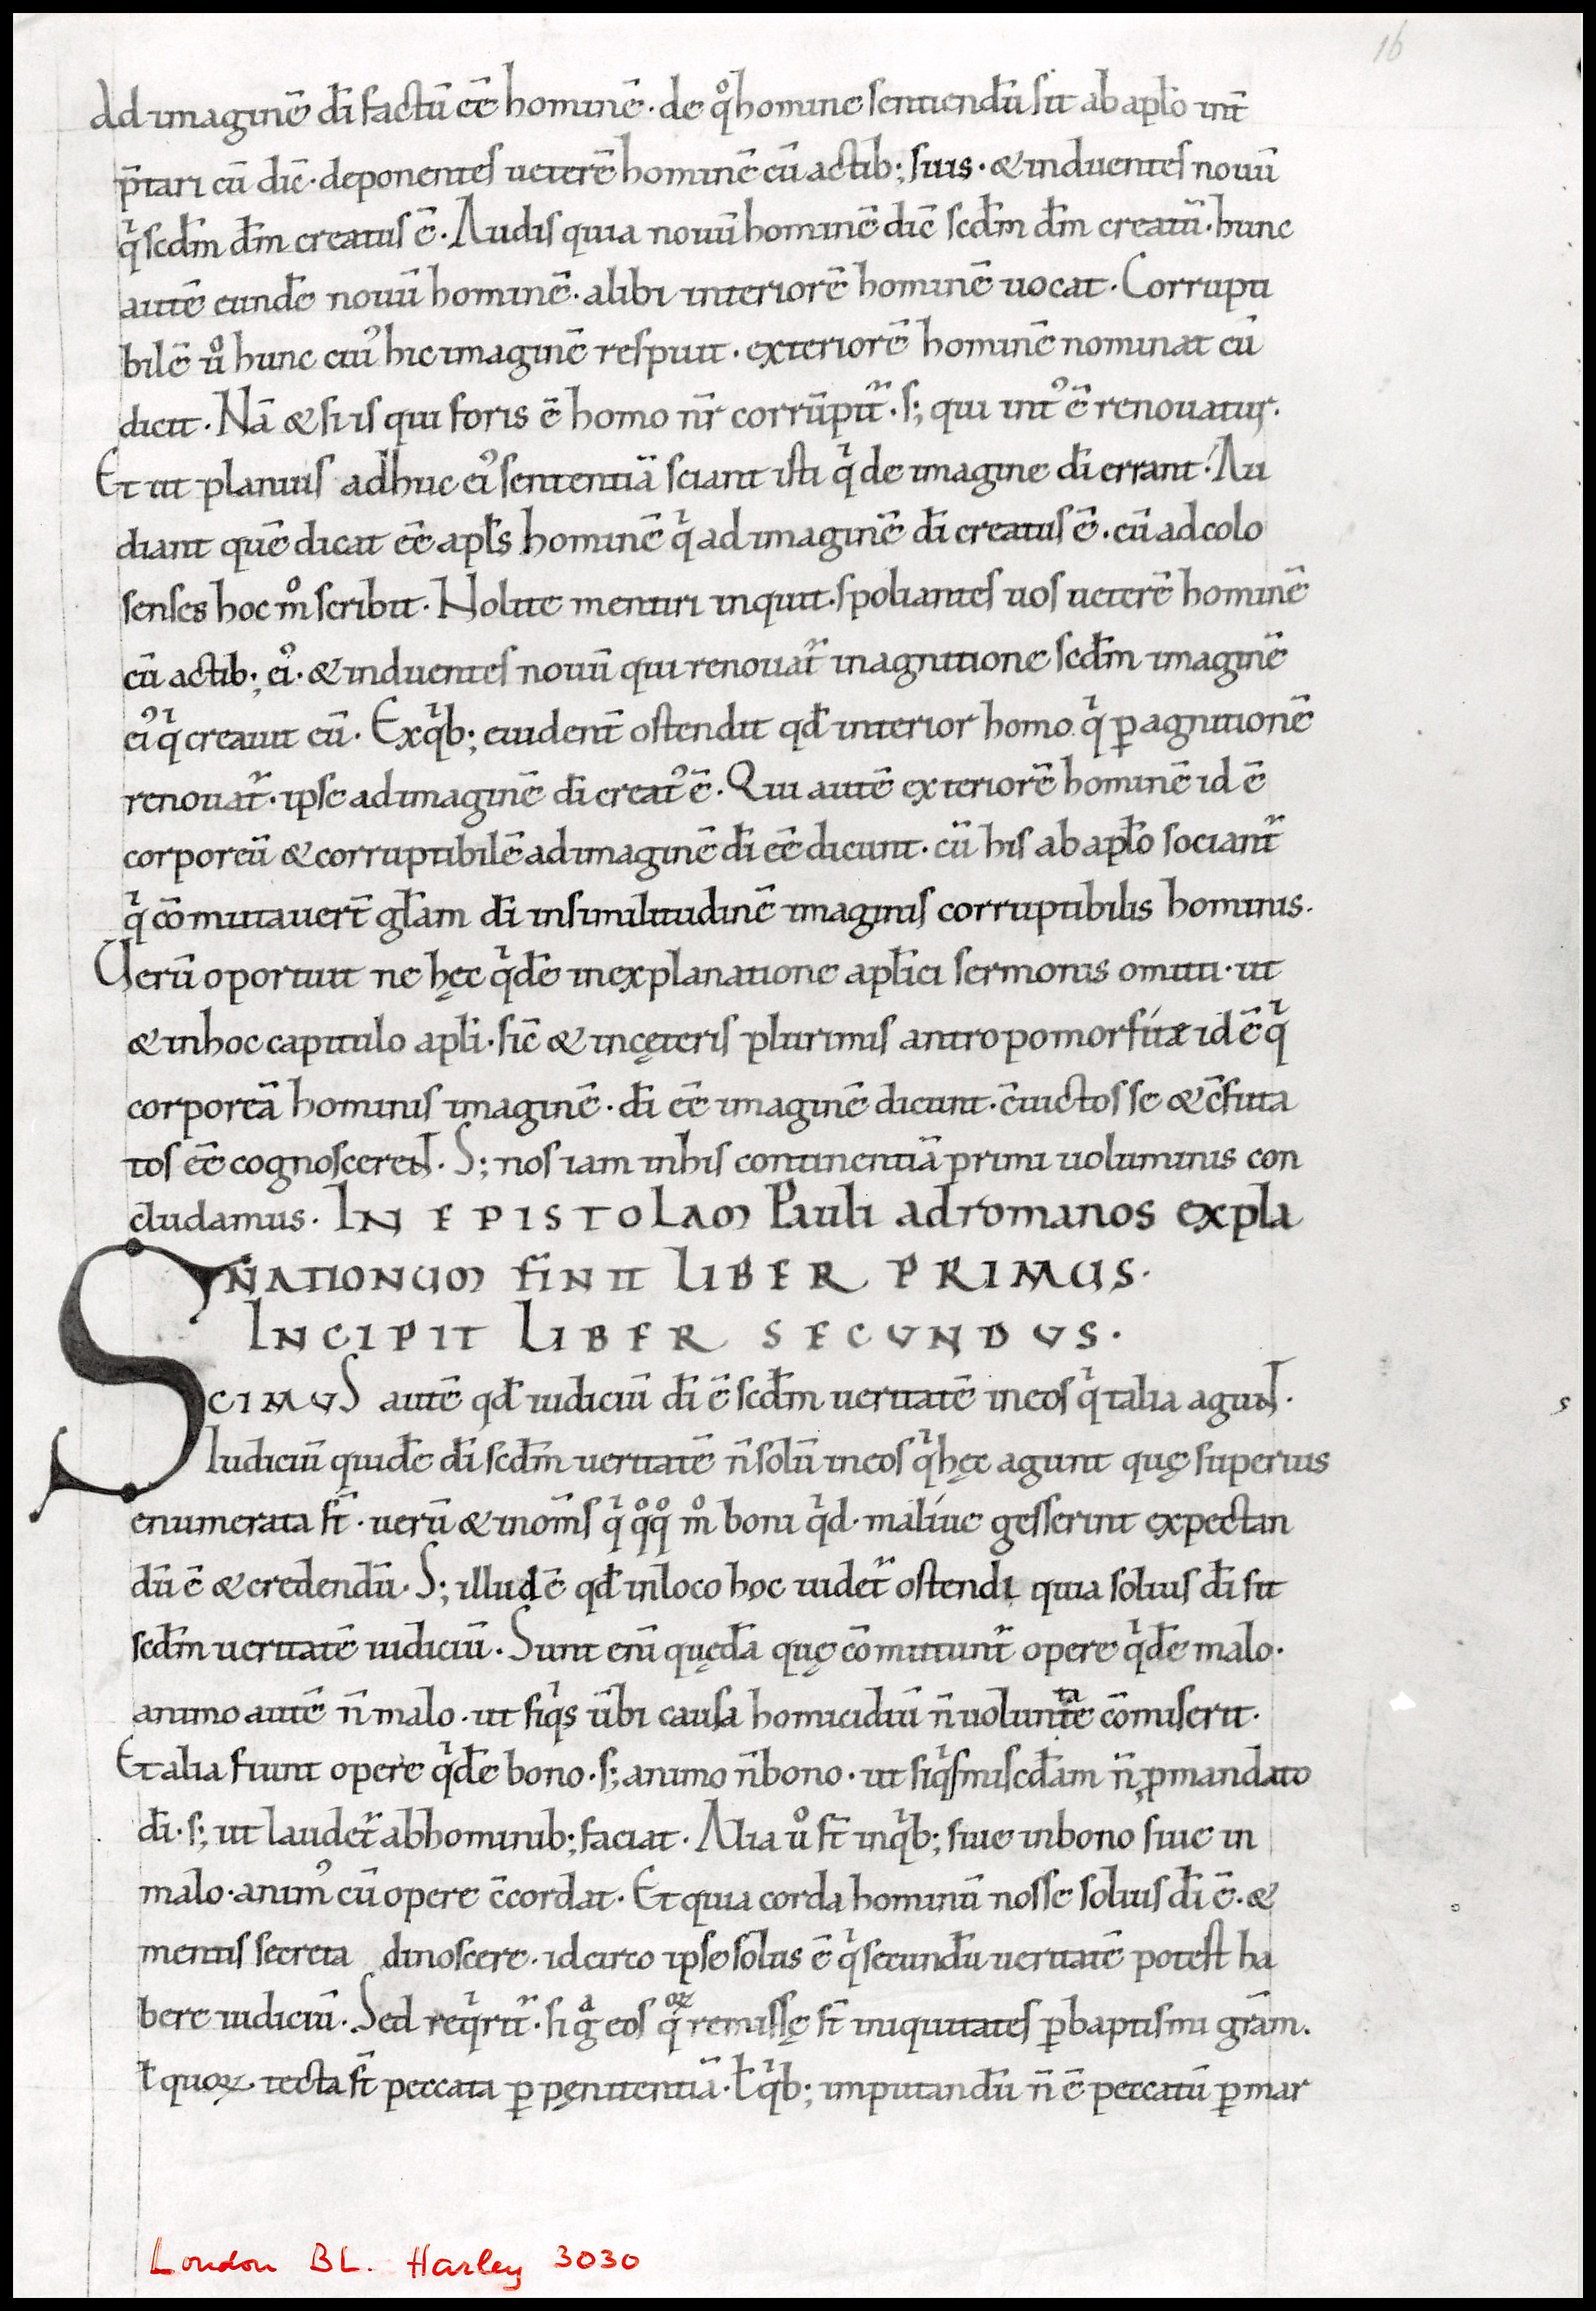 16
Ad imaginē dī factū eē hominē · de qͦ homine sentiendū sit ab aplo int̄
p̄tari cū dic̄ · deponentes ueterē hominē cū actib; suis · & induentes nouū
qͥ scdm̄ dm̄ creatus ē · Audis quia nouū hominē dic̄ scdm̄ dm̄ creatū · hunc
autē eundē nouū hominē · alibi interiorē hominē uocat · Corrupti
bilē uͦ hunc cui᾽ hic imaginē respuit · exteriorē hominē nominat cū
dicit · Nā & si is qui foris ē homo nr̄ corrūpit᷑ · s; qui int᾽ ē renouatur ·
Et ut planius adhuc ei᾽ sententiā sciant isti qͥ de imagine dī errant · Au
diant quē dicat eē apls̄ hominē qͥ ad imaginē dī creatus ē · cū ad colo
senses hoc mͦ scribit · Nolite mentiri inquit · spoliantes uos ueterē hominē
cū actib; ei᾽ · & induentes nouū qui renouat᷑ in agnitione scdm̄ imaginē
ei᾽ qͥ creauit eū · Ex qͥb; euident̄ ostendit qd̄ interior homo qͥ ꝑ agnitionē
renouat᷑ · ipse ad imaginē dī creat᾽ ē · Qui autē exteriorē hominē id ē
corporeū & corruptibilē ad imaginē dī eē dicunt · cū his ab aplo sociant᷑
qͥ cōmutauer̄t glam̄ dī in similitudinē imaginis corruptibilis hominis ·
Uerū oportuit ne hęc qͥdē in explanatione aplici sermonis omitti · ut
& in hoc capitulo apli · sic̄ & in cęteris plurimis antropomorfitæ id ē qͥ
corporeā hominis imaginē · dī eē imaginē dicunt · c̄uictos se & c̄futa
tos eē cognoscerent · S; nos iam in his continentiā primi uoluminis con
cludamus · IN EPISTOLAM Pauli ad romanos expla
NATIONUM FINIT LIBER PRIMUS ·
INCIPIT LIBER SECUNDUS ·
SCIMUS autē qd̄ iudiciū dī ē scdm̄ ueritatē in eos qͥ talia agunt ·
Iudiciū quidē dī scdm̄ ueritatē n̄ solū in eos qͥ hęc agunt quę superius
enumerata st̄ · uerū & in om̄s qͥ qͦqͦ mͦ boni qͥd · malíue gesserint expectan
dū ē & credendū · S; illud ē qd̄ in loco hoc uidet᷑ ostendi quia solius dī sit
scdm̄ ueritatē iudiciū · Sunt enī quędā quę cōmittunt᷑ opere qͥdē malo ·
animo autē n̄ malo · ut siqͥs ūbi causa homicidiū n̄ uoluntate cōmiserit ·
Et alia fiunt opere qͥdē bono · s; animo n̄ bono · ut siqͥs misc̄dam n̄ ꝓ mandato
dī · s; ut laudet᷑ ab hominib; faciat · Alia uͦ st̄ in qͥb; siue in bono siue in
malo · anim᾽ cū opere c̄cordat · Et quia corda hominū nosse solius dī ē · &
mentis secreta dinoscere · idcirco ipse solus ē qͥ secundū ueritatē potest ha
bere iudiciū · Sed reqͥrit᷑ · si gͣ eos qͦꝝ remissę st̄ iniquitates ꝑ baptismi gram̄ ·
ł quoꝝ · tecta st̄ peccata ꝑ pęnitentiā · ł qͥb; imputandū n̄ ē peccatū ꝑ mar
London BL. Harley 3030